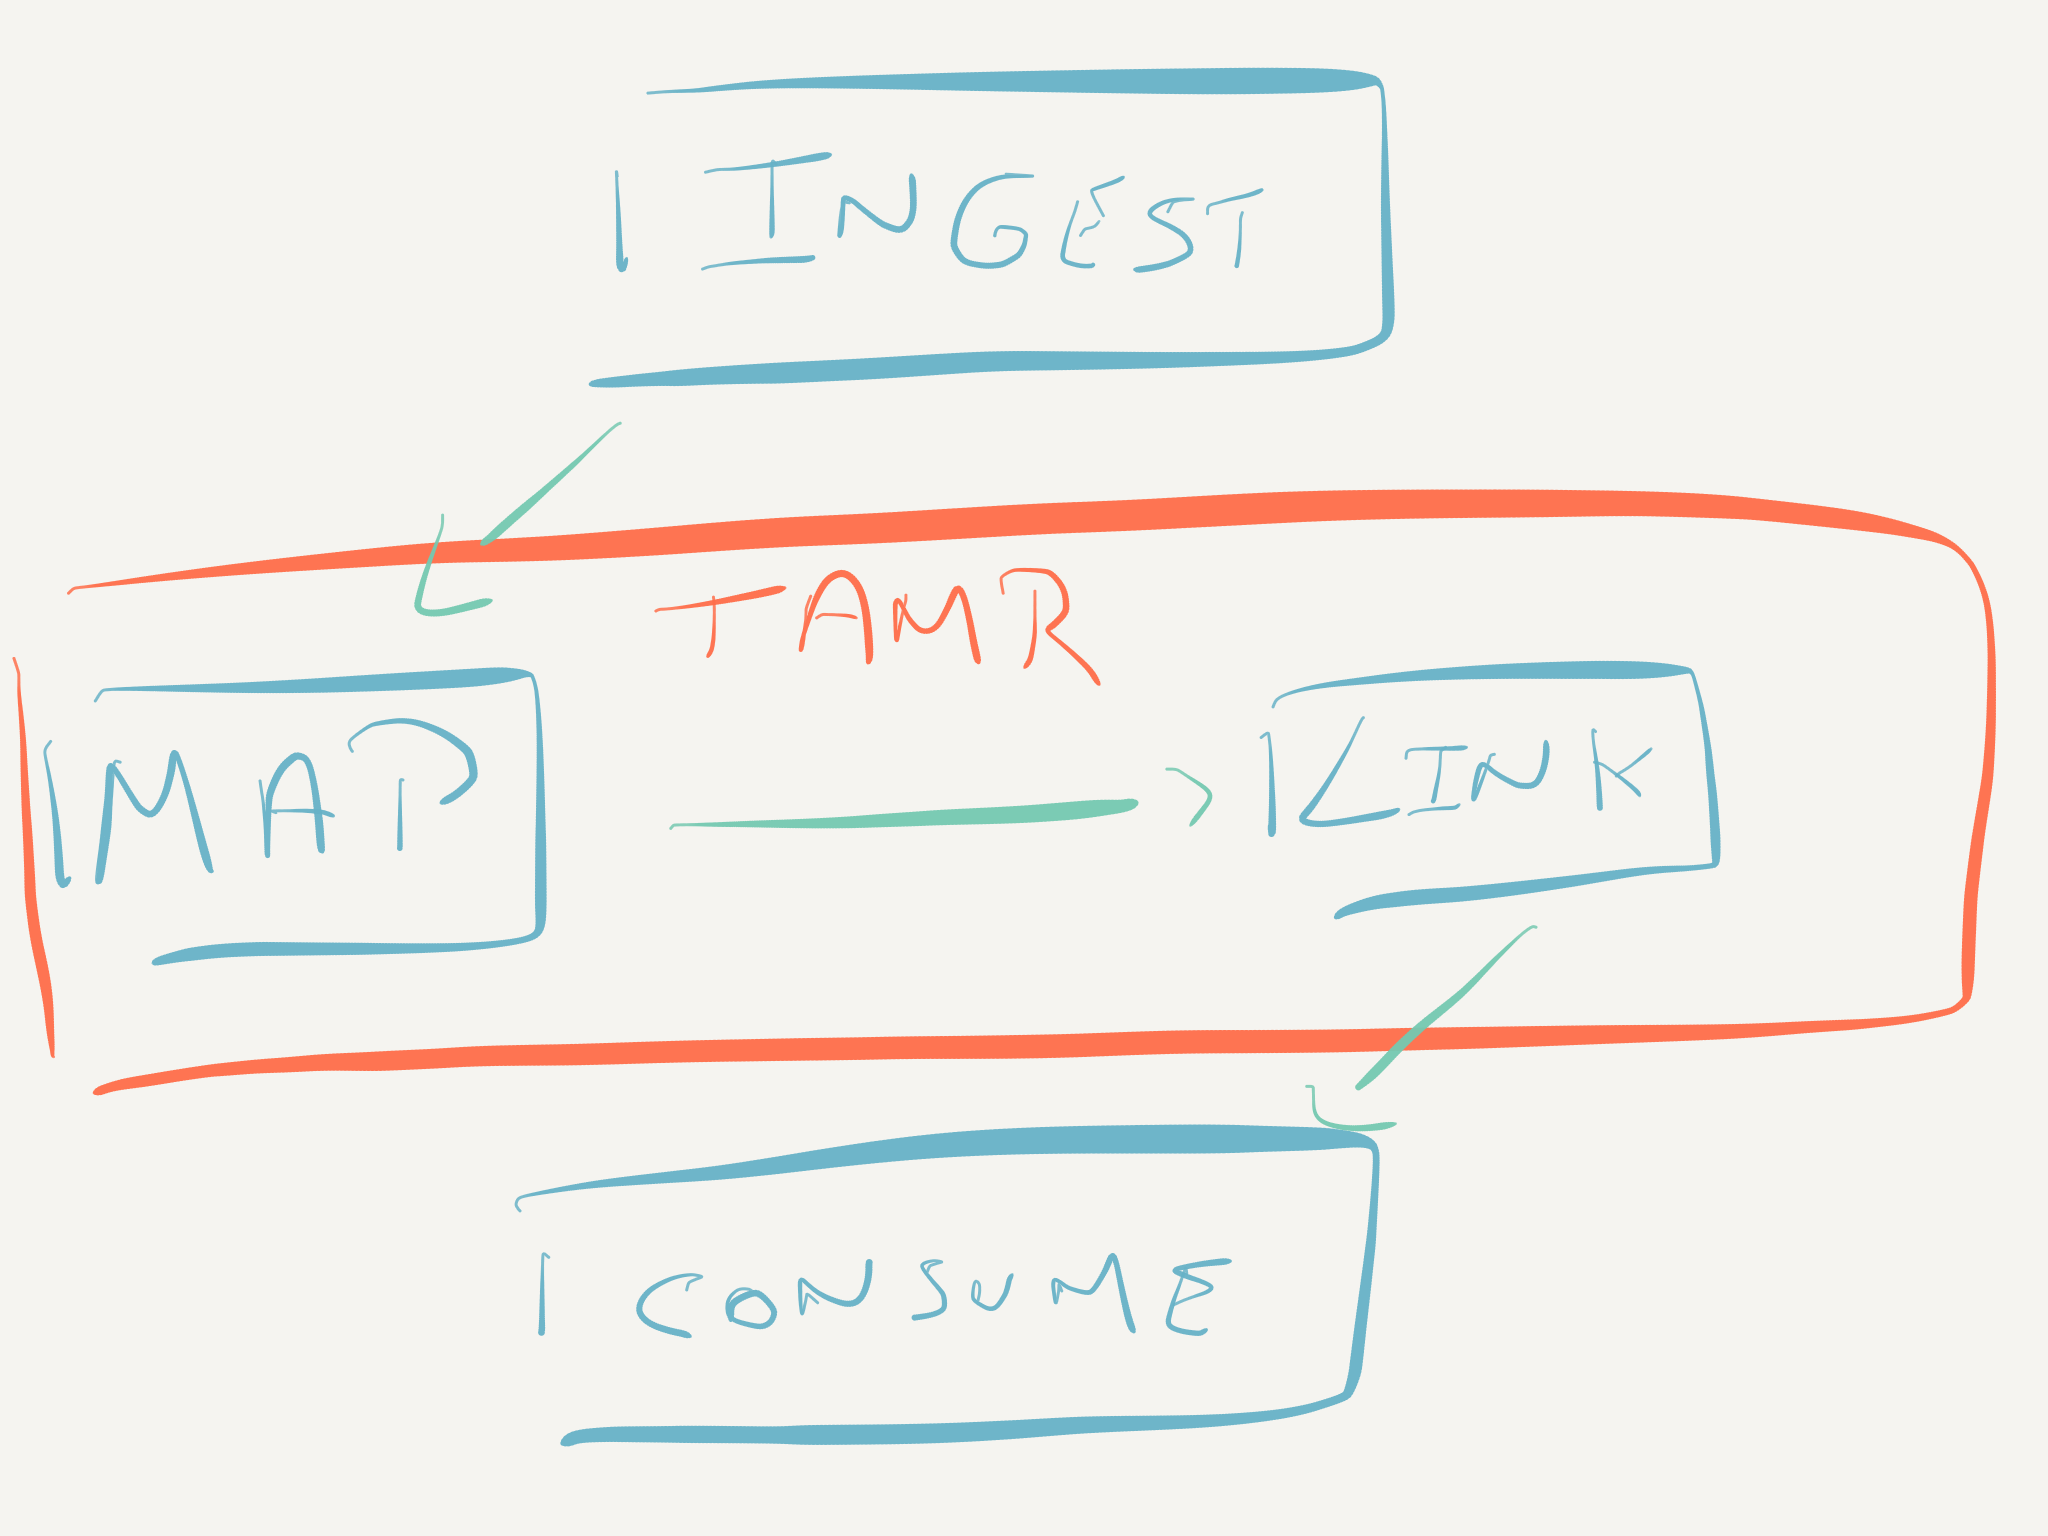 INGEST
TAMR
MAP
LINK
CONSUME